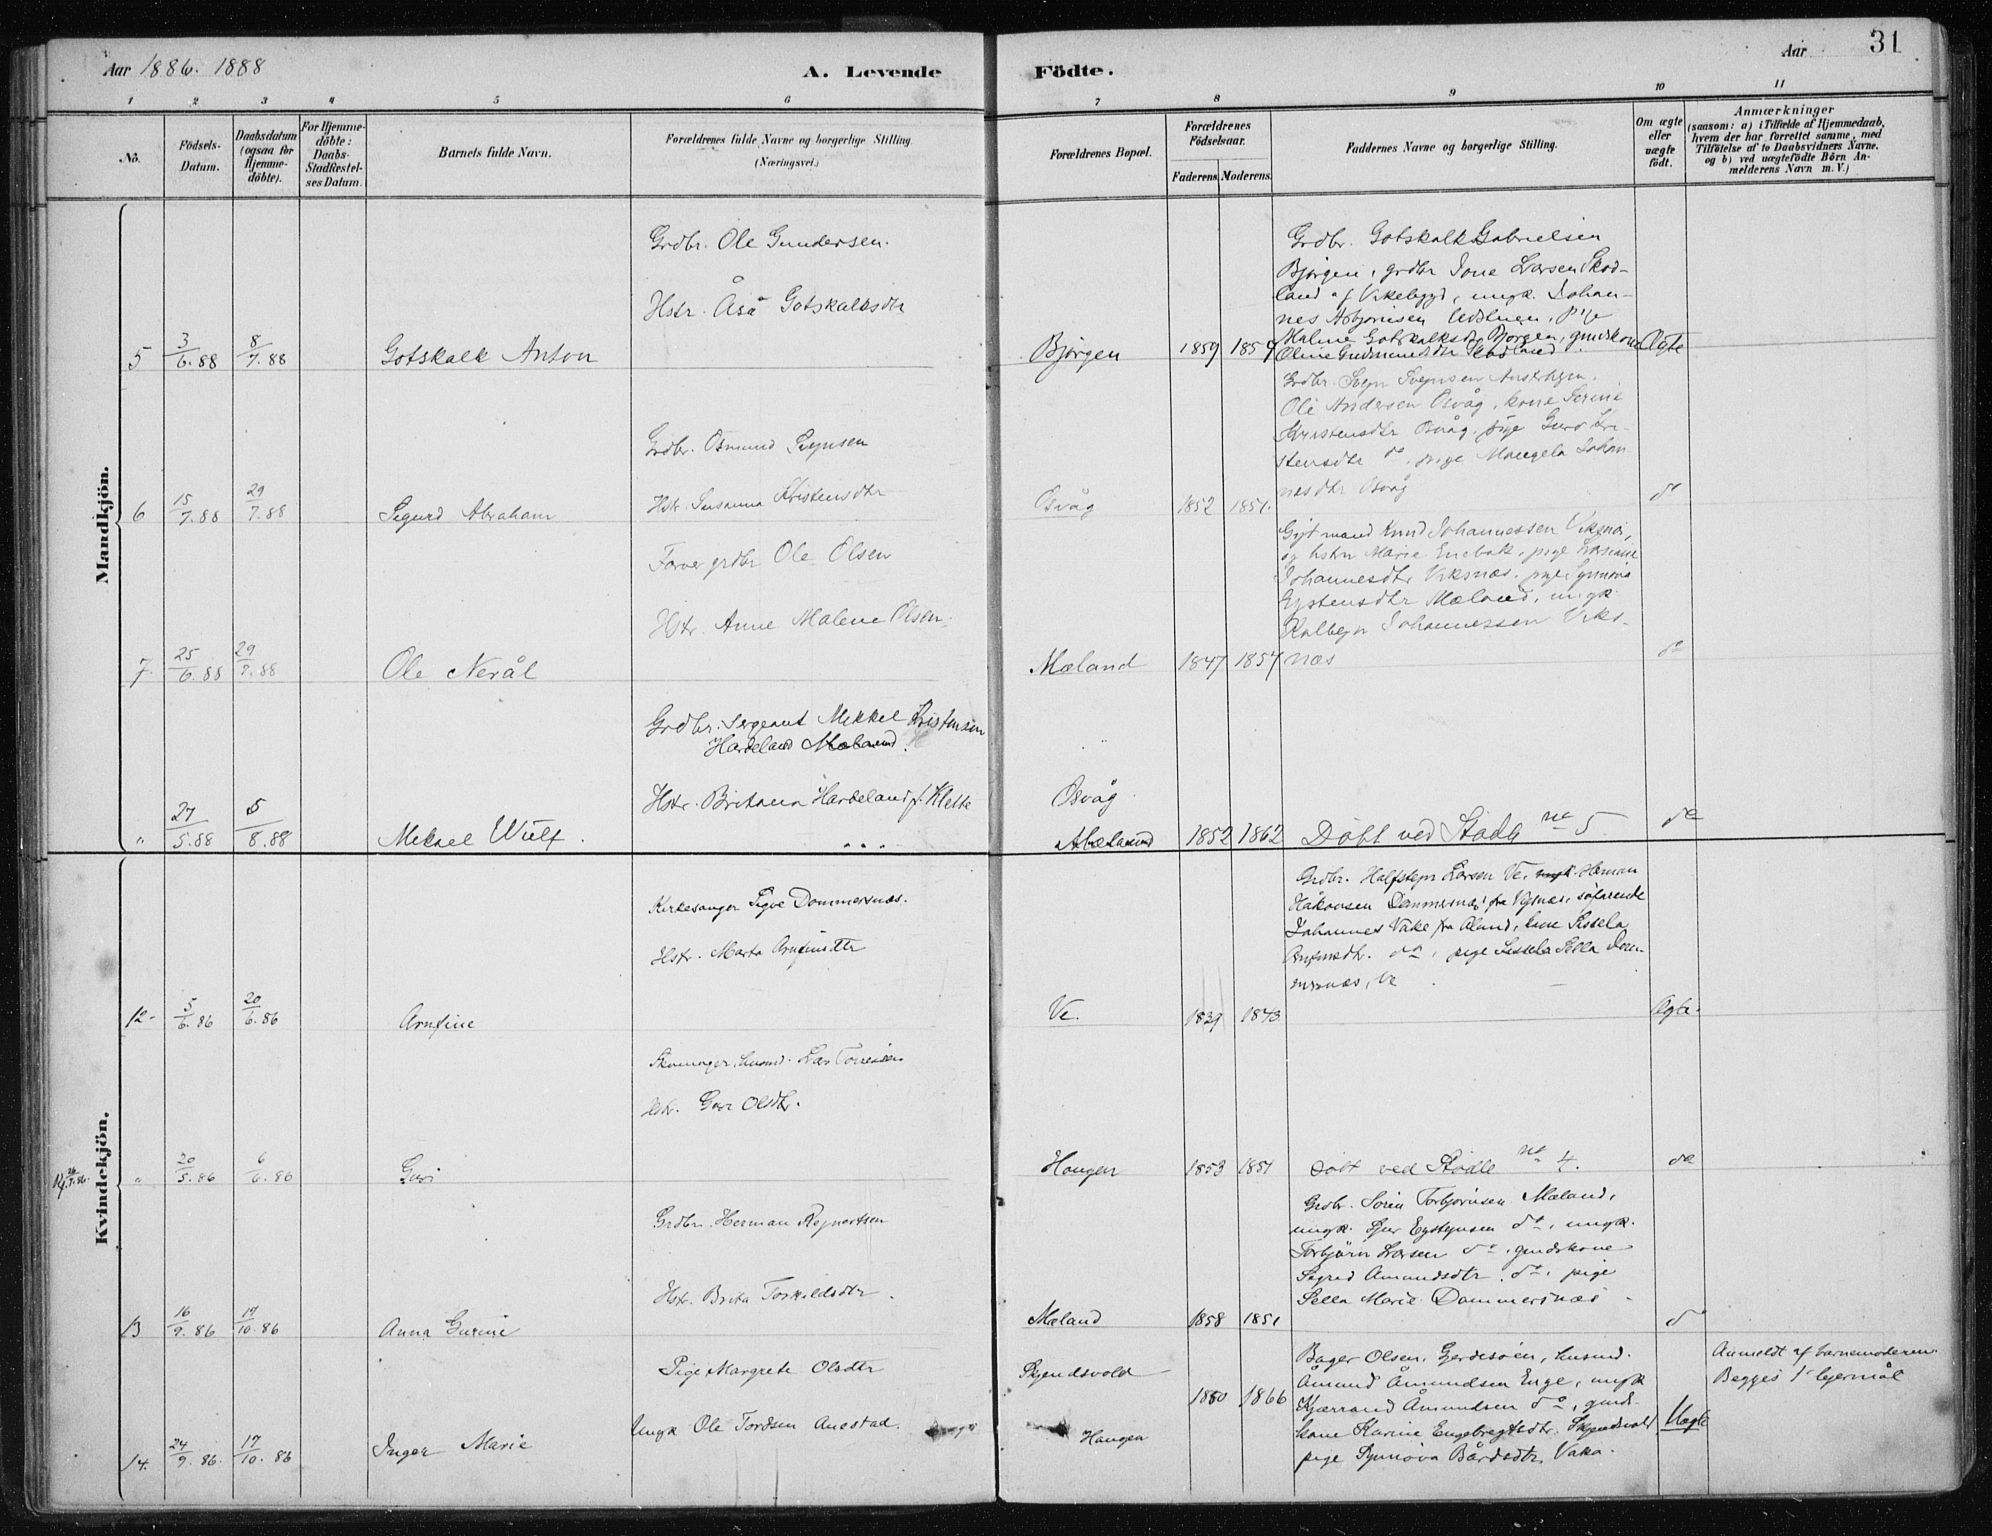 Aar 1886. 1888
A. Levende
Födte.
Aar
31
1 2 3 4 5 6 7 8 9 10 11
No.
Födsels-
Datum.
Daabsdatum
(ogsaa for
Hjemme-
döbte).
For Hjemme-
döbte:
Daabs-
Stadfæstel-
ses Datum.
Barnets fulde Navn.
Forældrenes fulde Navne og borgerlige Stilling
(Næringsvei.)
Forældrenes Bopæl.
Forældrenes
Födselsaar.
Faderens. Moderens.
Faddernes Navne og borgerlige Stilling.
Om ægte
eller
uægte
födt.
Anmærkninger
(saasom: a) i Tilfælde af Hjemmedaab,
hvem der har forrettet samme, med
Tilföielse af to Daabsvidners Navne.
og b) ved uægtefödte Börn An-
melderens Navn m. V.)
Mandkjön.
5
3/6.88
8/7.88
Gotskalk Anton
Grdbr. Ole Gundersen.
Hstr. Åså Gotskalksdtr
Bjørgen
1859 1859
Grdbr. Gotskalk Gabrielsen
Bjørgen, grdbr Tone Larsen Skod-
land af Vikebygd, ungk. Johan-
nes Asbjørnsen Udstuen, pige
Malene Gotskalksdtr Bjørgen, grudskone
Oline Gudmundsdtr Skodland
Ægte
6
15/7.88
29/7.88
Sigurd Abraham
Grdbr. Osmund Svejnsen
Hstr. Susanna Kristensdtr
Osvåg
1852 1851.
Grdbr. Svejn Svejnsen
Ole Andersen Osvåg, kone Serine
Kristensdtr Osvåg, pige Guro Kri-
stensdtr do, pige Mangela Johan
nesdtr Osvåg
do
7.
25/6.88
29/7.88
Ole Nerål
Farver grdbr Ole Olsen
Hstr. Anne Malene Olsen.
Mæland
1847 1854
Gift mand Knud Johannessen Viksnæs,
og hstr Marie Enebak, pige
Johannesdtr Viksnæs, pige Synnøva
Eystensdtr Mæland, ungk
Kolbejn Johannessen Viks-
næs
do
"
27/5.88
5/8.88
Mikael Wulf.
Grdbr. Sergeant Mikkel Kristensen
Hardeland Mæland.
Hstr. Britana Hardeland f. Klette
" " "
Osvåg
Mæland
1852 1862
Døbt ved Stødle no 5.
do
Kvindekjön.
12-
5/6.86
20/6.86
Arnfine
Kirkesanger Sigve Dommersnæs.
Hstr. Marta Arnfinsdtr
Ve.
1839 1843.
Grdbr. Halfstejn Larsen Ve, ungk. Herman
Håkonsen Dommersnæs fra Vignæs, søfarende
Johannes Vake fra Åland, kone Sissela
Arnfinsdtr. do, pige Sissela Sella Dom-
mersnæs, Ve
Ægte.
"
20/5.86
6/6.86
Guri
Skomager, husmd. Lars Tørresen
Hstr. Guri Olsdtr.
Haugen
1853 1851
døbt ved Stødle no 4.
do
13
16/9.86
17/10.86
Anna Gurine
Grdbr. Herman Rejnertsen
Hstr. Brita Torkildsdtr.
Mæland
1858 1851
Grdbr. Søren Torbjørnsen Mæland,
ungk. Sjur Eystejnsen do, ungk.
Torbjørn Larsen do, grudskone
Sigrid Åmundsdtr. do, pige
Sella Marie Dommersnæs
do
14.
24/9.86.
17/10.86
Inger Marie
Pige Margrete Olsdtr
Ungk Ole Tordsen Anestad.
Skjendsvold
Haugen
1860 1866
Bager Olsen, Gerdesøien, husmd.
Åmund Åmundsen Enge, ungk
Kjærrand Åmundsen do, gruds-
kone Karine Engebregtsdtr. Skjendsvold,
pige Synnøva Bårdsdtr, Vaka.
Uægte
Anmeldt af barnemoderen.
Begges 1ste lejermål